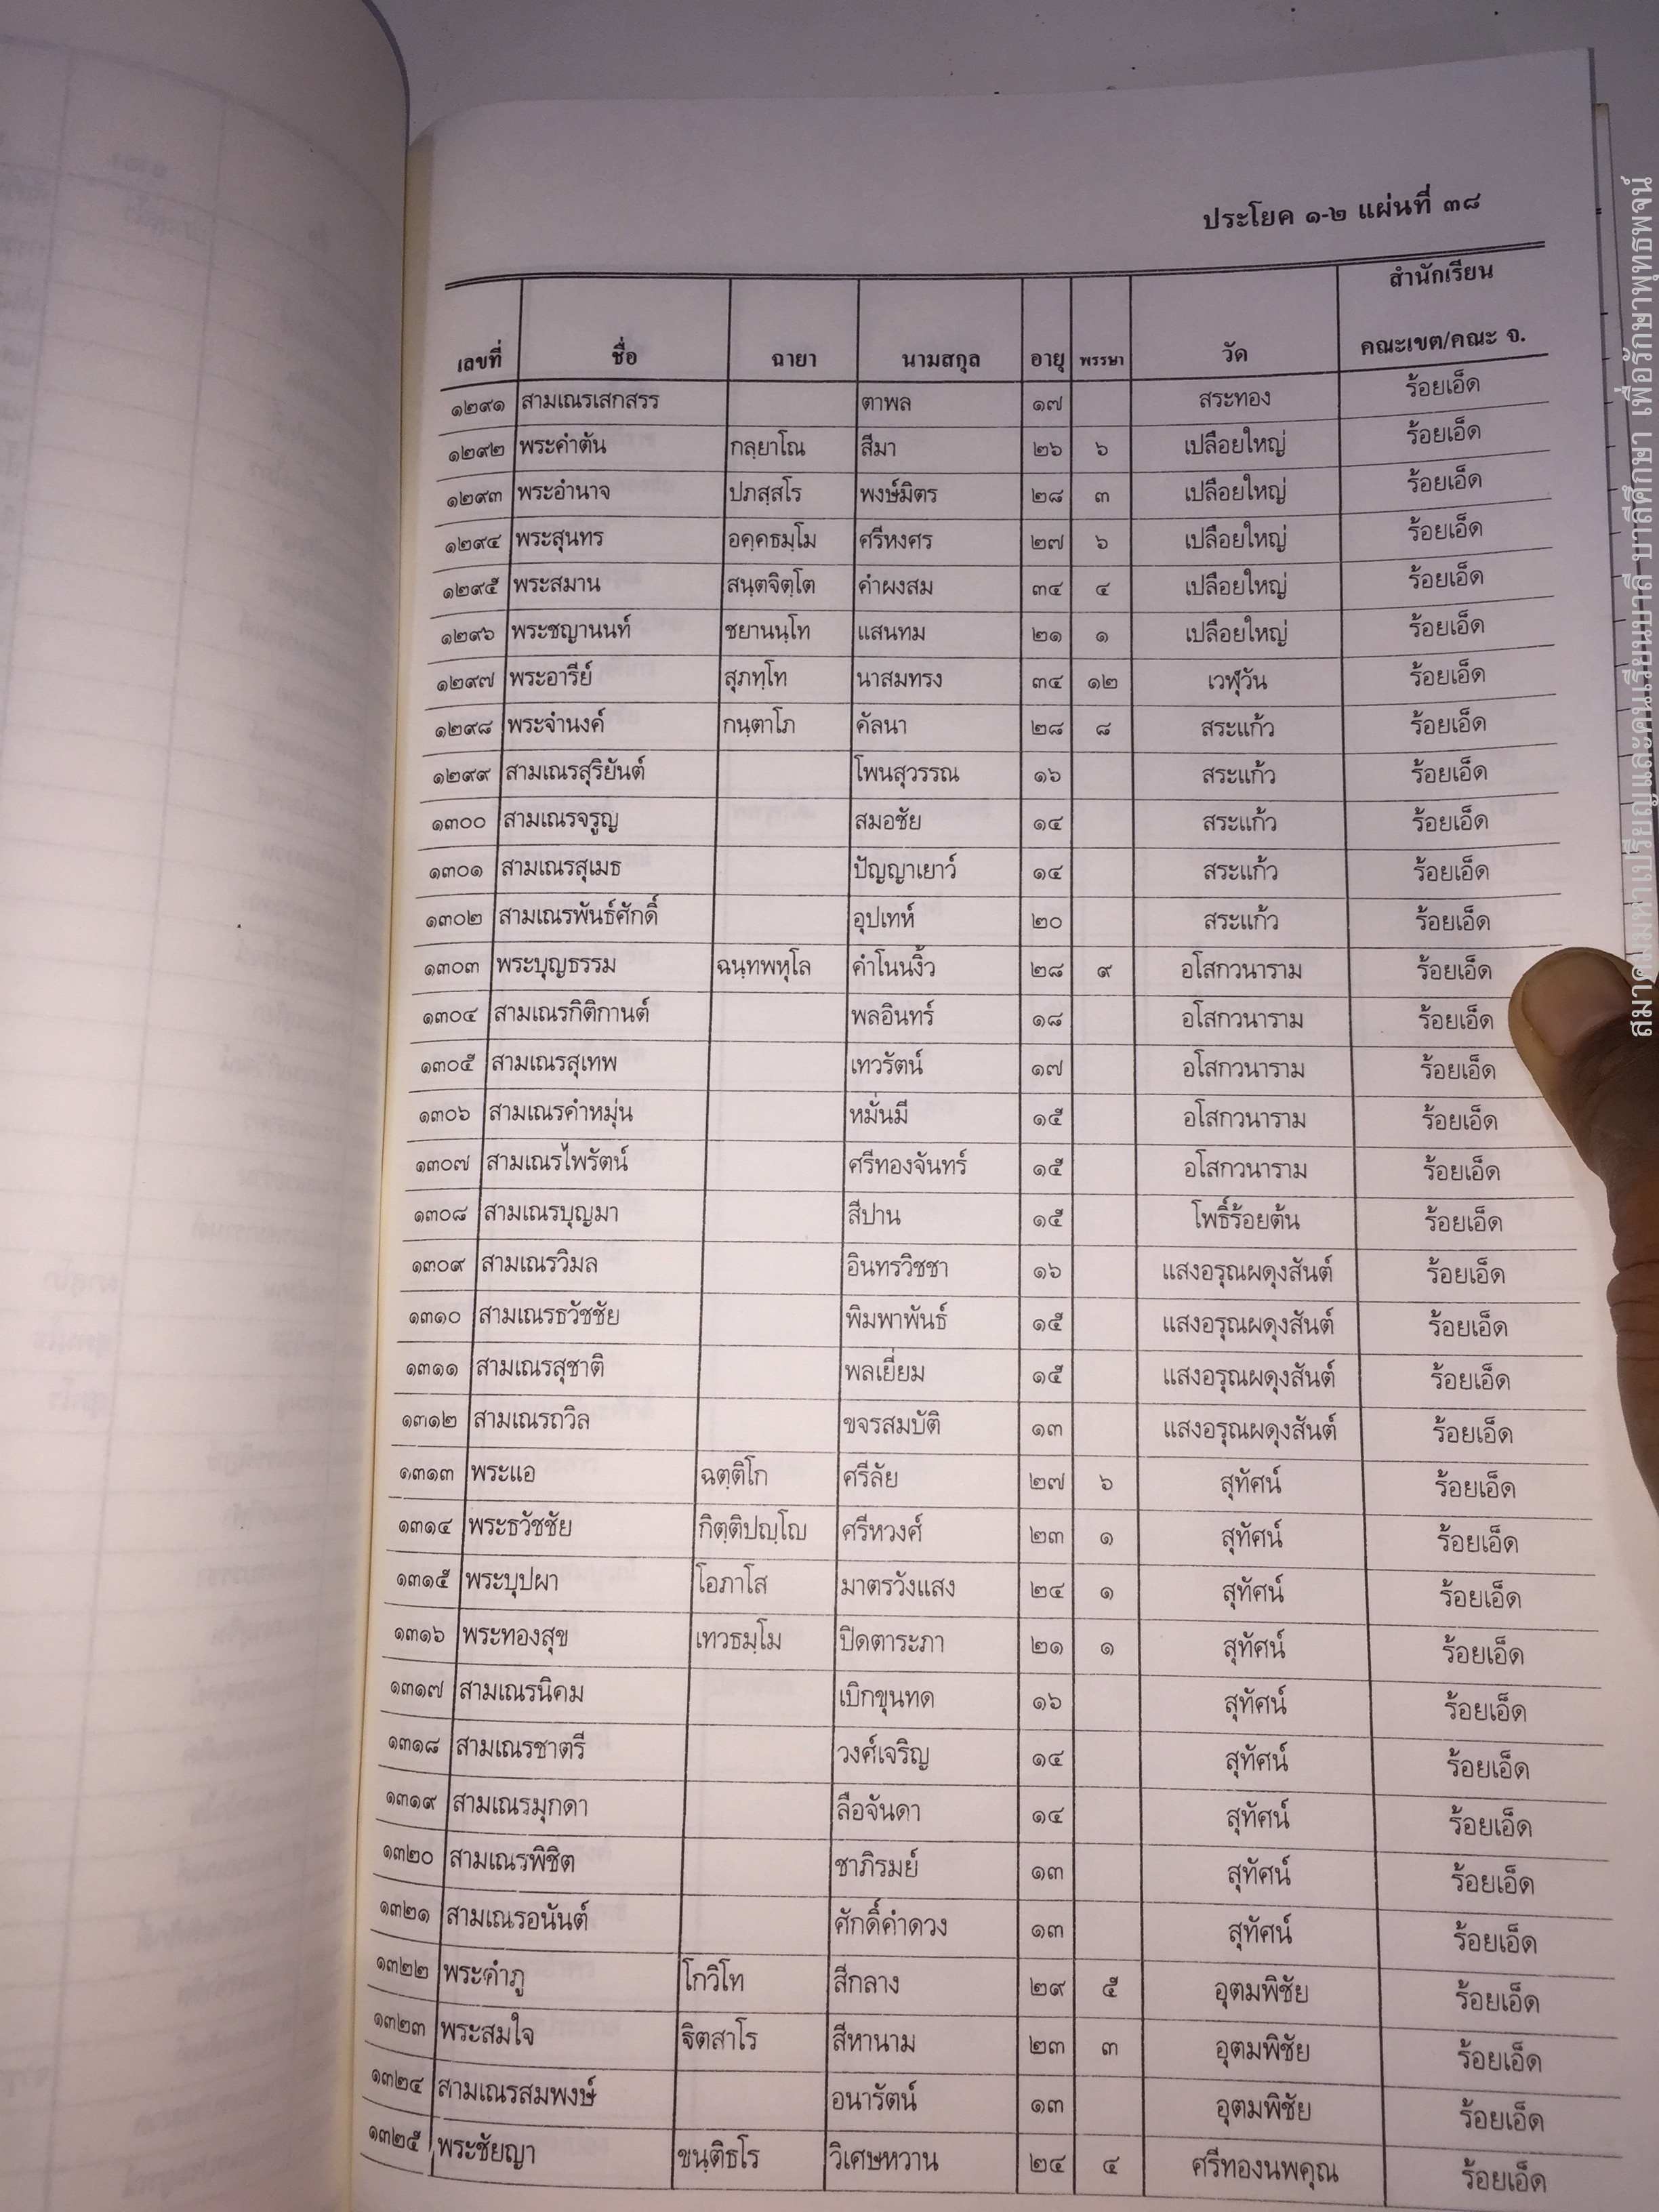 ประโยค ๑-๒ แผ่นที่ ๓๘
สำนักเรียน
เลขที่ ชื่อ ฉายา นามสกุล อายุ พรรษา วัด คณะเขต/คณะ จ.
๑๒๙๑ สามเณรเสกสรร ตาพล ๑๗ สระทอง ร้อยเอ็ด
๑๒๙๒ พระคำตัน กลฺยาโณ สีมา ๒๖ ๖ เปลือยใหญ่ ร้อยเอ็ด
๑๒๙๓ พระอำนาจ ปภสฺสโร พงษ์มิตร ๒๘ ๓ เปลือยใหญ่ ร้อยเอ็ด
๑๒๙๔ พระสุนทร อคฺคธมฺโม ศรีหงศร ๒๗ ๖ เปลือยใหญ่ ร้อยเอ็ด
๑๒๙๕ พระสมาน สนฺตจิตฺโต คำผงสม ๓๔ ๔ เปลือยใหญ่ ร้อยเอ็ด
๑๒๙๖ พระชญานนท์ ชยานนฺโท แสนทม ๒๑ ๑ เปลือยใหญ่ ร้อยเอ็ด
๑๒๙๗ พระอารีย์ สุภทฺโท นาสมทรง ๓๔ ๑๒ เวฬุวัน ร้อยเอ็ด
๑๒๙๘ พระจำนงค์ กนฺตาโภ คัลนา ๒๘ ๘ สระแก้ว ร้อยเอ็ด
๑๒๙๙ สามเณรสุริยันต์ โพนสุวรรณ ๑๖ สระแก้ว ร้อยเอ็ด
๑๓๐๐ สามเณรจรูญ สมอชัย ๑๔ สระแก้ว ร้อยเอ็ด
๑๓๐๑ สามเณรสุเมธ ปัญญาเยาว์ ๑๔ สระแก้ว ร้อยเอ็ด
๑๓๐๒ สามเณรพันธ์ศักดิ์ อุปเทห์ ๒๐ สระแก้ว ร้อยเอ็ด
๑๓๐๓ พระบุญธรรม ฉนฺทพหุโล คำโนนงิ้ว ๒๘ ๙ อโสกวนาราม ร้อยเอ็ด
๑๓๐๔ สามเณรกิติกานต์ พลอินทร์ ๑๘ อโสกวนาราม ร้อยเอ็ด
๑๓๐๕ สามเณรสุเทพ เทวรัตน์ ๑๗ อโสกวนาราม ร้อยเอ็ด
๑๓๐๖ สามเณรคำหมุ่น หมั่นมี ๑๕ อโสกวนาราม ร้อยเอ็ด
๑๓๐๗ สามเณรไพรัตน์ ศรีทองจันทร์ ๑๕ อโสกวนาราม ร้อยเอ็ด
๑๓๐๘ สามเณรบุญมา สีปาน ๑๕ โพธิ์ร้อยต้น ร้อยเอ็ด
๑๓๐๙ สามเณรวิมล อินทรวิชชา ๑๖ แสงอรุณผดุงสันต์ ร้อยเอ็ด
๑๓๑๐ สามเณรธวัชชัย พิมพาพันธ์ ๑๕ แสงอรุณผดุงสันต์ ร้อยเอ็ด
๑๓๑๑ สามเณรสุชาติ พลเยี่ยม ๑๕ แสงอรุณผดุงสันต์ ร้อยเอ็ด
๑๓๑๒ สามเณรถวิล ขจรสมบัติ ๑๓ แสงอรุณผดุงสันต์ ร้อยเอ็ด
๑๓๑๓ พระแอ ฉตฺติโก ศรีลัย ๒๗ ๖ สุทัศน์ ร้อยเอ็ด
๑๓๑๔ พระธวัชชัย กิตฺติปญฺโญ ศรีหวงศ์ ๒๓ ๑ สุทัศน์ ร้อยเอ็ด
๑๓๑๕ พระบุปผา โอภาโส มาตรวังแสง ๒๔ ๑ สุทัศน์ ร้อยเอ็ด
๑๓๑๖ พระทองสุข เทวธมฺโม ปิดตาระภา ๒๑ ๑ สุทัศน์ ร้อยเอ็ด
๑๓๑๗ สามเณรนิคม เบิกขุนทด ๑๖ สุทัศน์ ร้อยเอ็ด
๑๓๑๘ สามเณรชาตรี วงศ์เจริญ ๑๔ สุทัศน์ ร้อยเอ็ด
๑๓๑๙ สามเณรมุกดา ลือจันดา ๑๔ สุทัศน์ ร้อยเอ็ด
๑๓๒๐ สามเณรพิชิต ชาภิรมย์ ๑๓ สุทัศน์ ร้อยเอ็ด
๑๓๒๑ สามเณรอนันต์ ศักดิ์คำดวง ๑๓ สุทัศน์ ร้อยเอ็ด
๑๓๒๒ พระคำภู โกวิโท สีกลาง ๒๙ ๕ อุตมพิชัย ร้อยเอ็ด
๑๓๒๓ พระสมใจ ฐิตสาโร สีหานาม ๒๓ ๓ อุตมพิชัย ร้อยเอ็ด
๑๓๒๔ สามเณรสมพงษ์ อนารัตน์ ๑๓ อุตมพิชัย ร้อยเอ็ด
๑๓๒๕ พระชัยญา ขนฺติธโร วิเศษหวาน ๒๔ ๔ ศรีทองนพคุณ ร้อยเอ็ด
สมาคมมหาเปรียญและคนเรียนบาลี บาลีศึกษา เพื่อรักษาพุทธพจน์